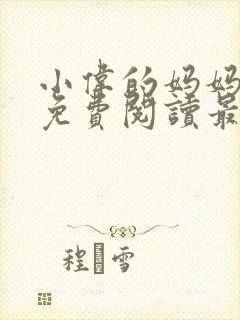 小偉的妈妈
免費閱讀最
程 雪